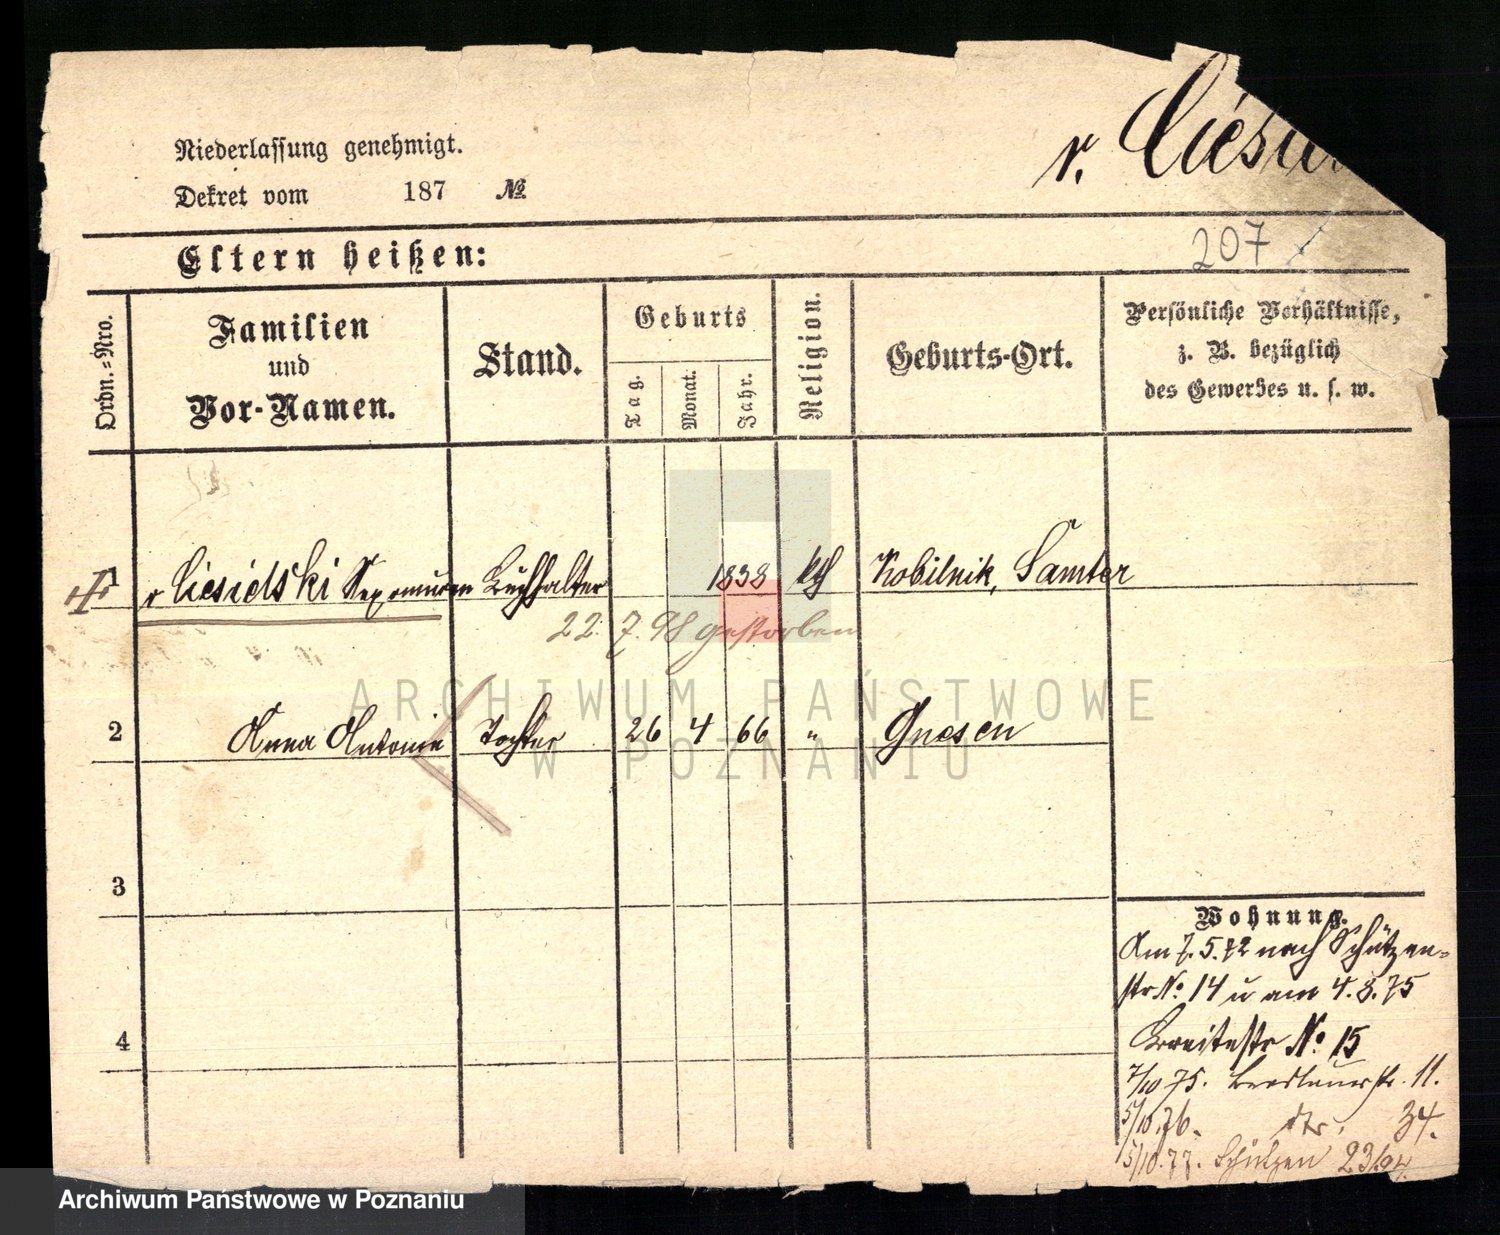 Niederlassung genehmigt.
Dekret vom 187 №
v. Ciesie
207
Eltern heißen:
Ordn.-Nro.
Familien
und
Vor-Namen.
Stand.
Geburts
Tag.
Monat.
Jahr.
Religion.
Geburts-Ort.
Persönliche Verhältnisse,
z. B. bezüglich
des Gewerbes u. s. w.
1 v Ciesielski Nepomucen Buchhalter 1838 kth Kobilnik, Samter
22. 7. 98 gestorben
2 Anna Antonie Tochter 26 4 66 " Gnesen
3
4
Wohnung.
Am 7.5.72 nach Schützen-
str No. 14 u am 4.8.75
Breitestr No. 15
7/10 75. Breslauerstr. 11.
5/10.76. dto. 34.
5/10.77. Schützen 23/24.
ARCHIWUM PAŃSTWOWE
W POZNANIU
Archiwum Państwowe w Poznaniu